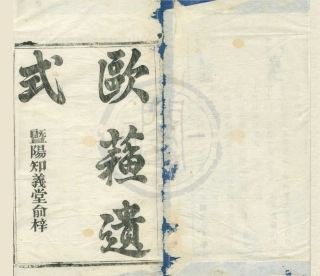 歐蘓遺
式
暨陽知義堂俞梓